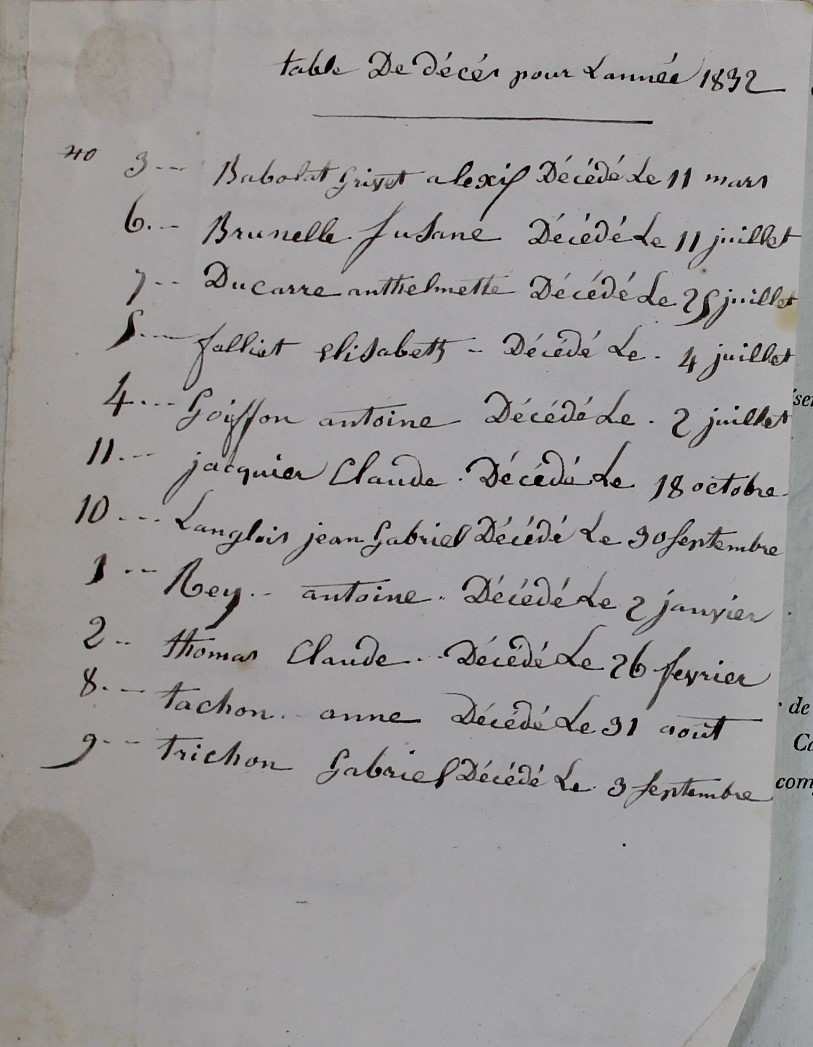 table De décés pour Lannée 1832
40 3 -- Babolat Grivet alexis Décédé Le 11 mars
6. -- Brunelle Susane Décédé Le 11 juillet
7 -- Ducarre anthelmette Décédé Le 25 juillet
5. -- falliet elisabeth - Décédé Le. 4 juillet
4. -- Goiffon antoine Décédé Le. 2 juillet
11. -- jacquier Claude. Décédé Le 18 octobre
10 --- Langlois jean Gabriel Décédé Le 30 septembre
1 -- Rey -- antoine. Décédé Le 2 janvier
2 -- thomas Claude -- Décédé Le 26 fevrier
8. -- tachon -- anne Décédé Le 31 août
9 -- trichon Gabriel Décédé Le 3 septembre
de
com